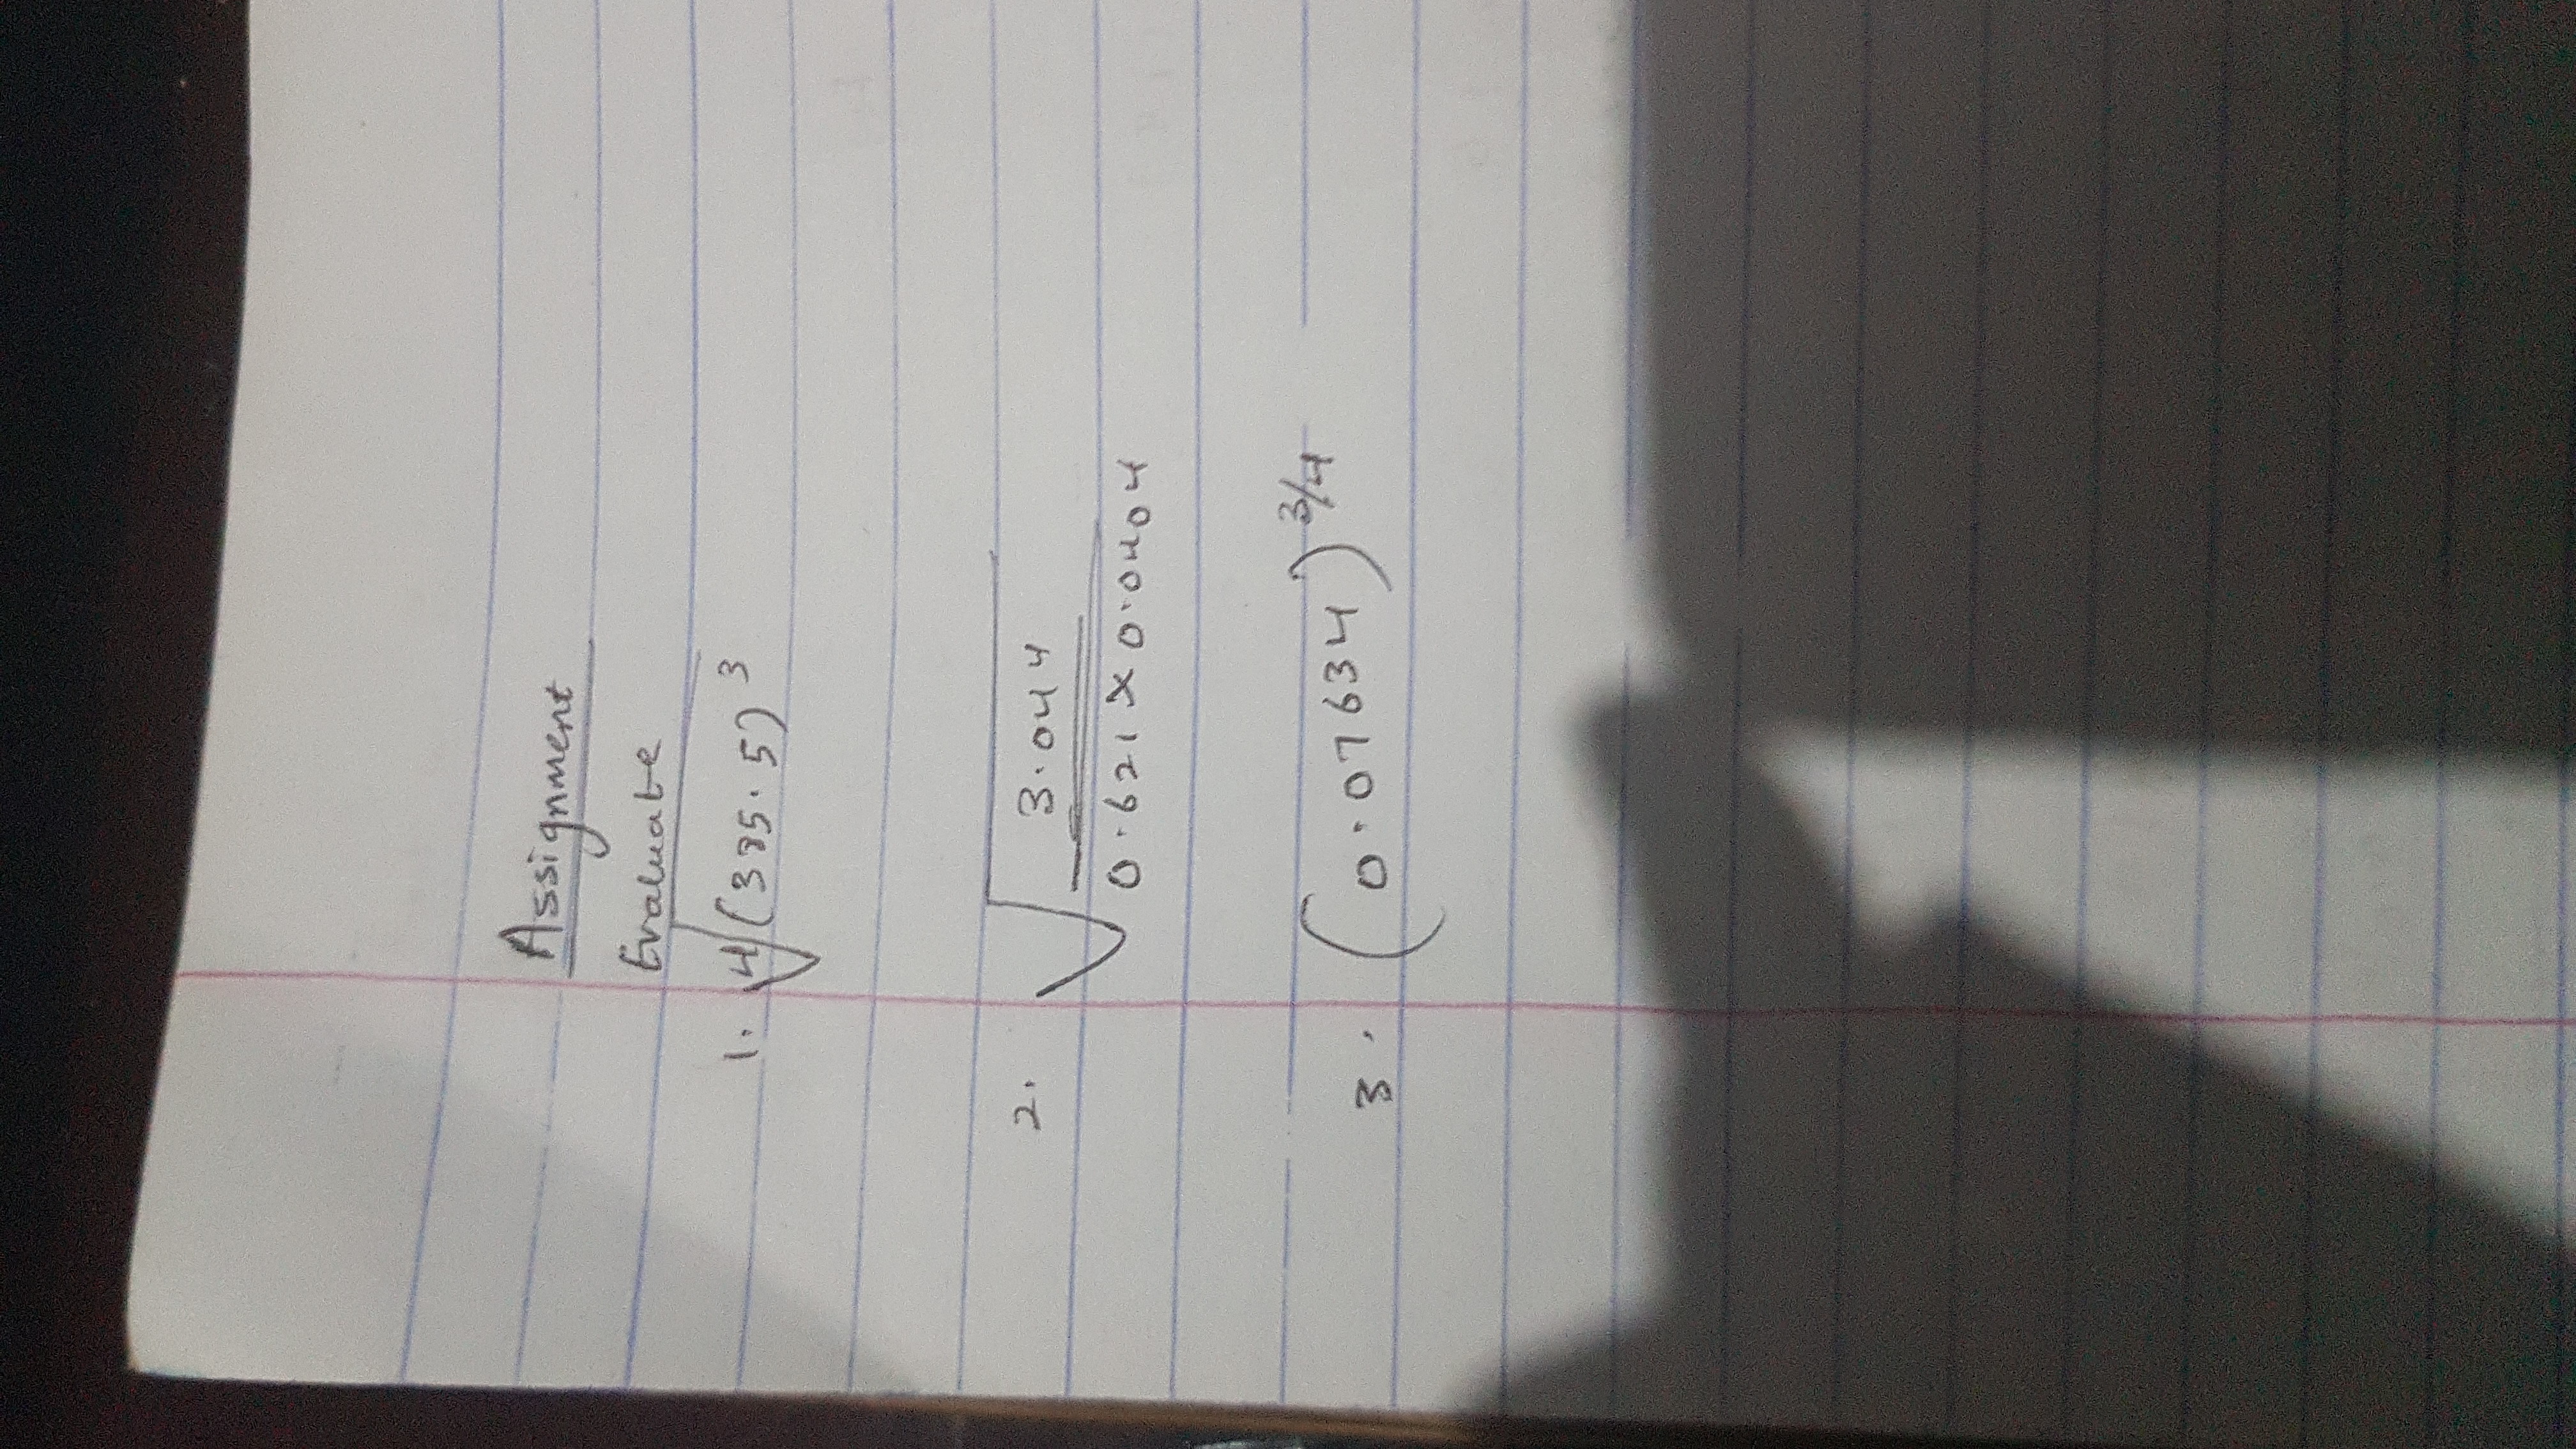 Assignment
Evaluate
1. ∜(335.5)³
2. √(3.044 / 0.621 × 0.0404)
3. (0.07634)^3/4